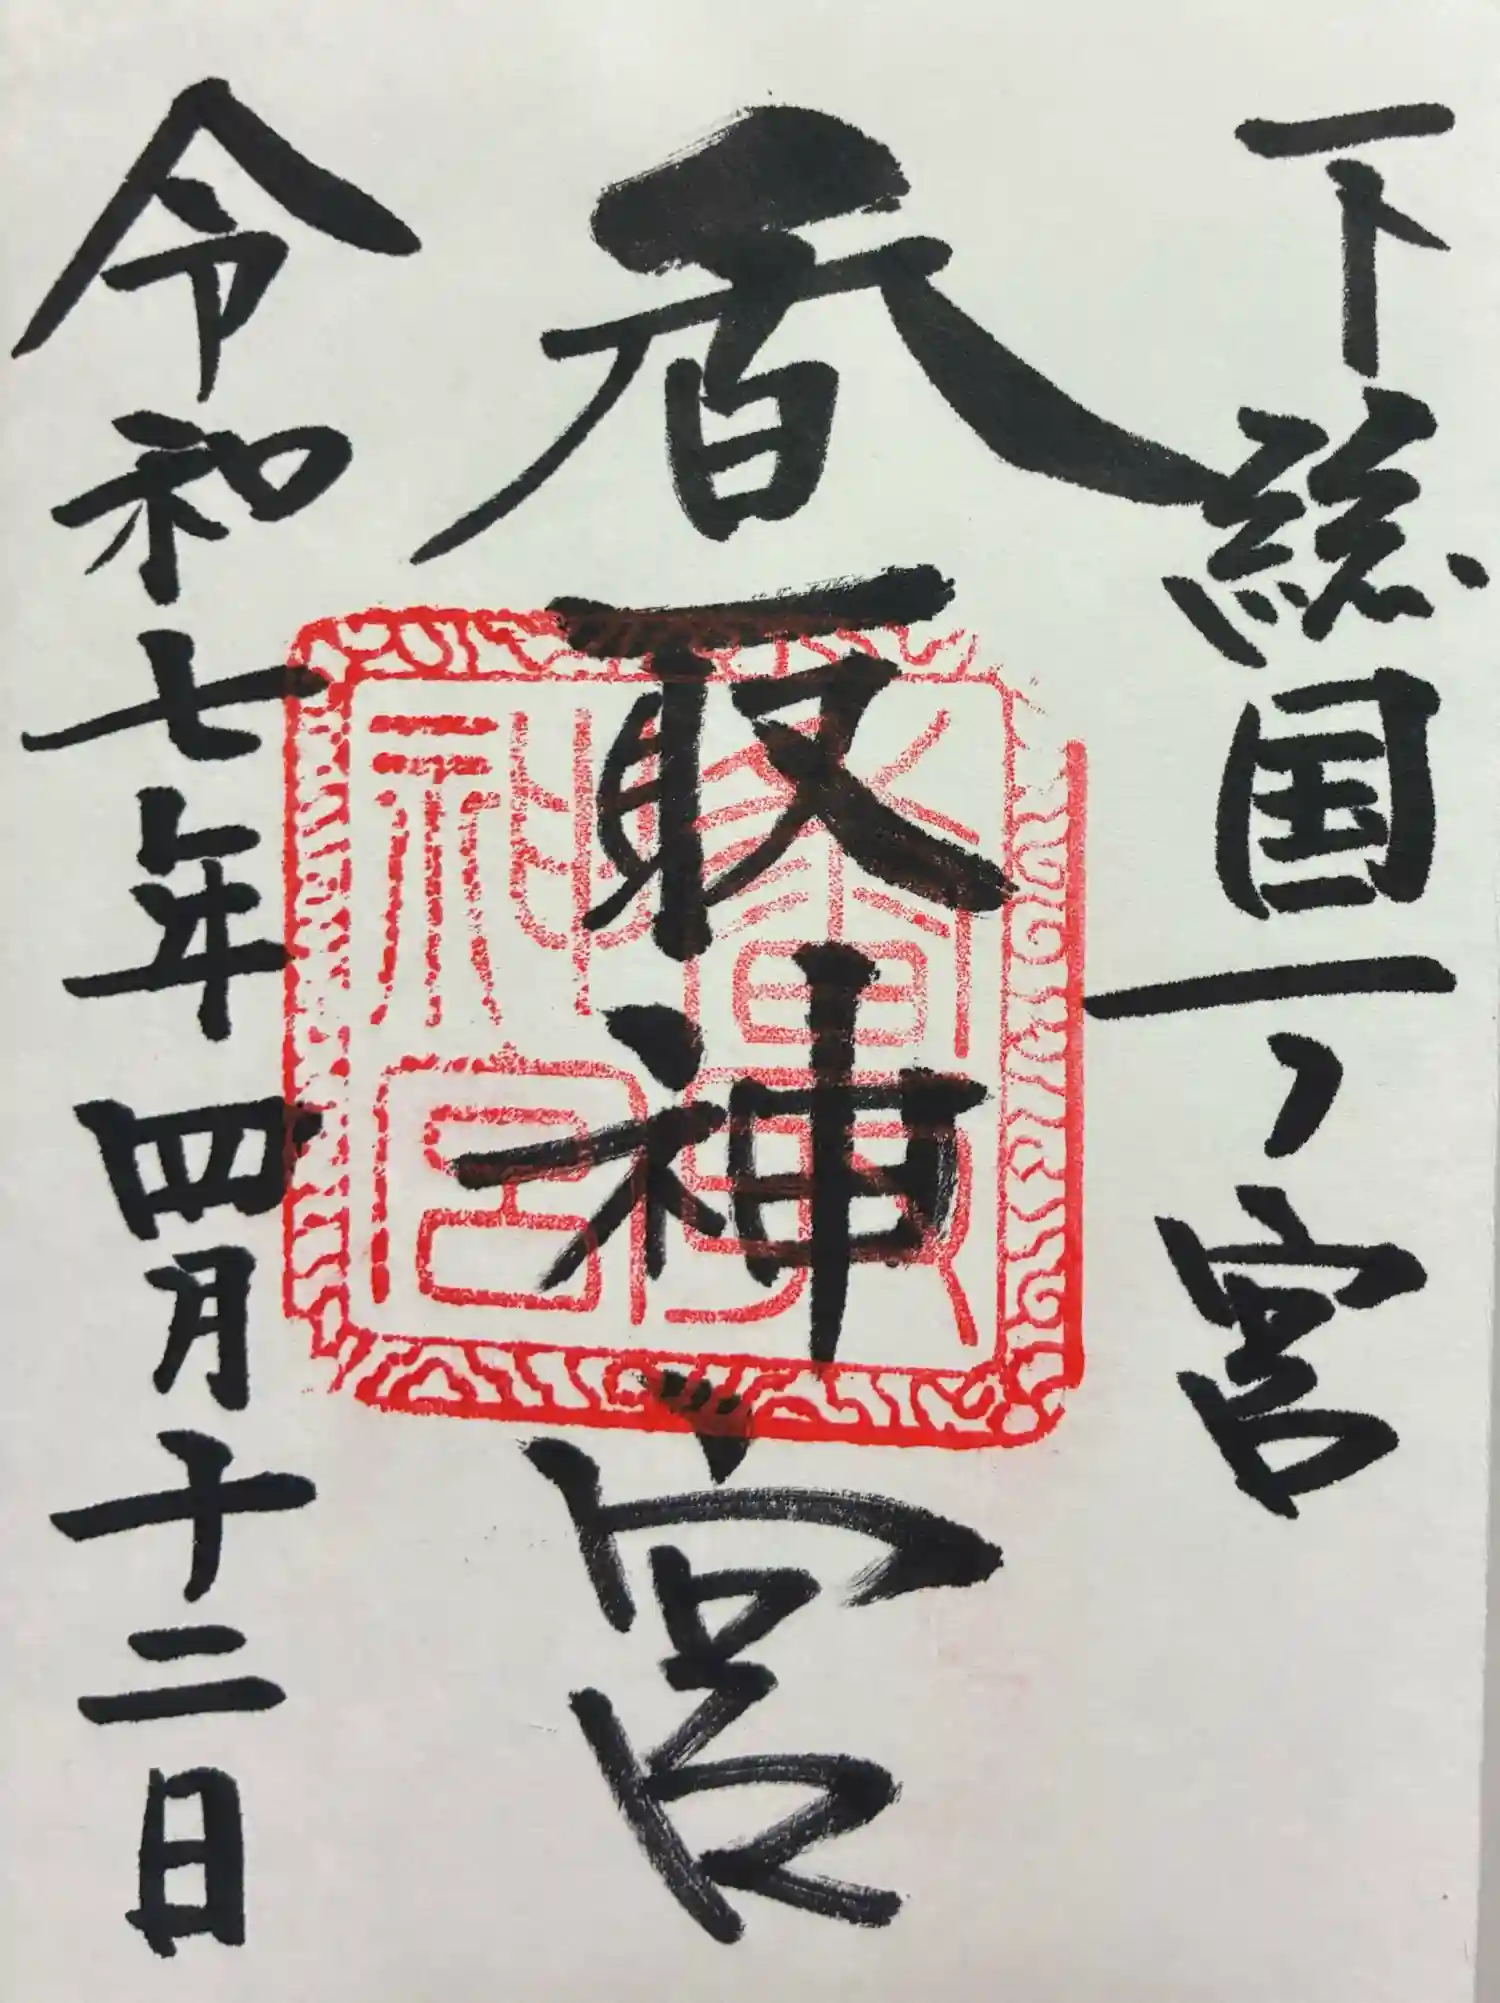 下総国一ノ宮
香取神宮
令和七年四月十二日
香取神宮